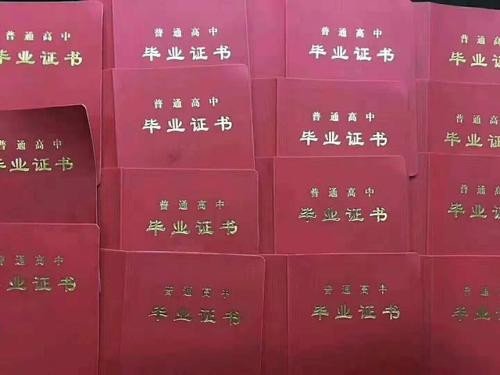 普通高中
毕业证书
普通高中
毕业证书
普通高中
毕业证书
普通高中
毕业证书
普通高中
毕业证书
普通高中
毕业证书
普通高中
毕业证书
普通高中
毕业证书
普通高中
毕业证书
普通高中
毕业证书
普通高中
毕业证书
普通高中
毕业证书
普通高中
毕业证书
普通高中
毕业证书
普通高中
毕业证书